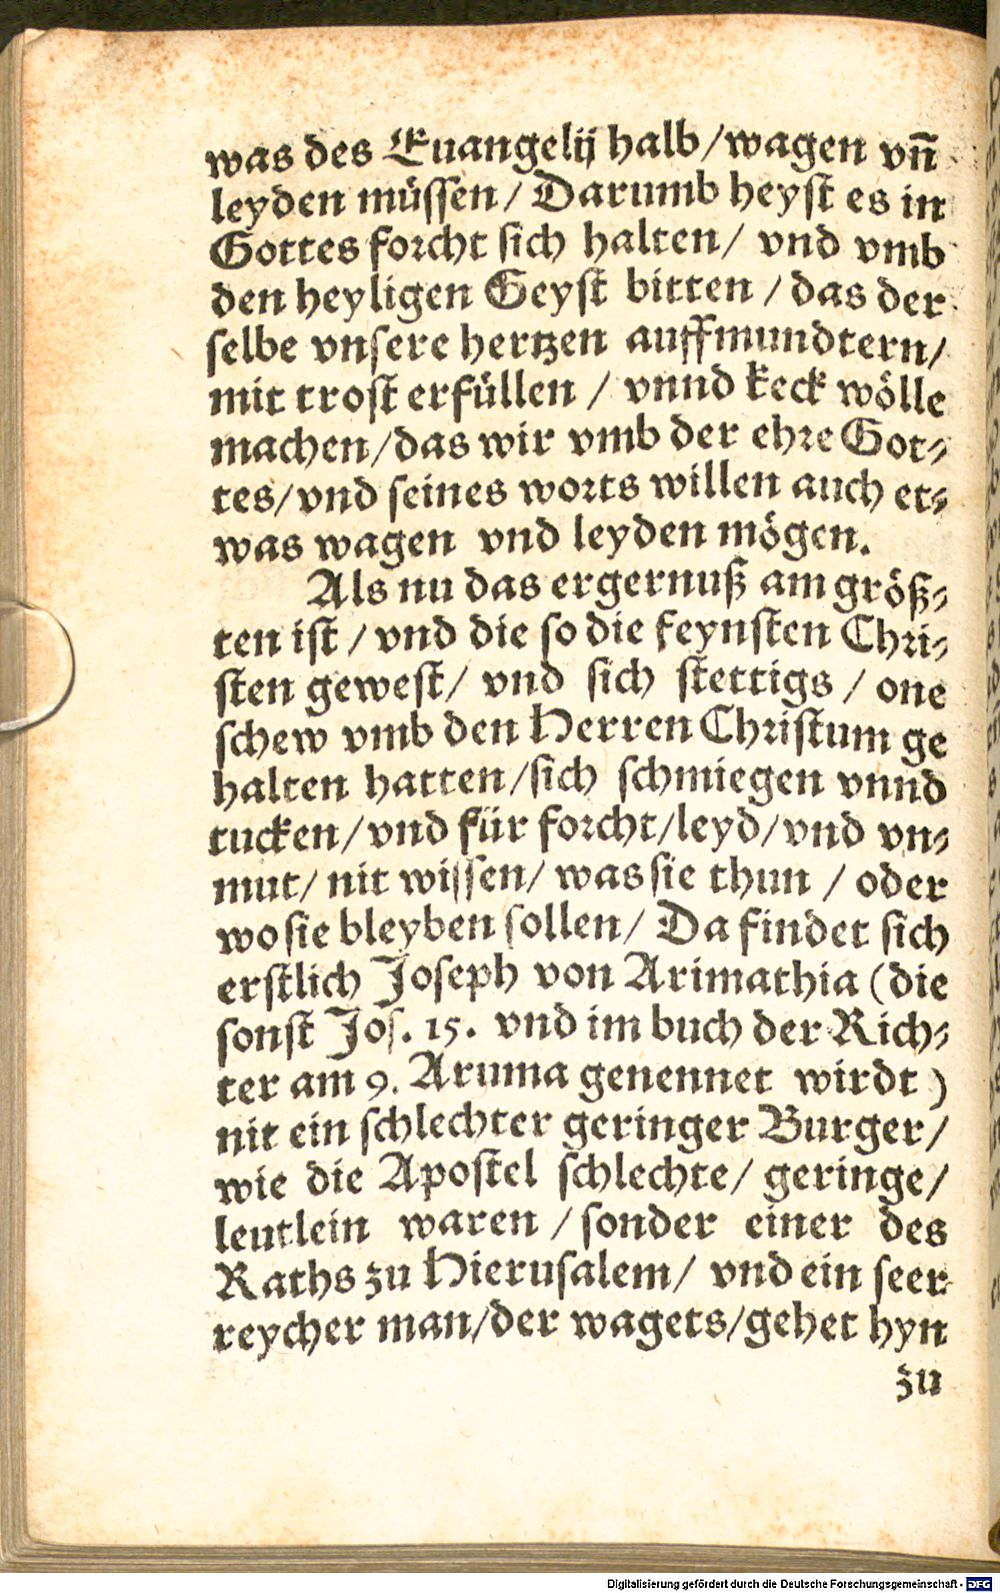 was des Euangelij halb/wagen vñ
leyden müssen/ Darumb heyst es in
Gottes forcht sich halten/ vnd vmb
den heyligen Geyst bitten /das der
selbe vnsere hertzen auffmundtern/
mit trost erfüllen / vnnd keck wölle
machen/das wir vmb der ehre Got⸗
tes/vnd seines worts willen auch et⸗
was wagen vnd leyden mögen.
Als nu das ergernuß am größ⸗
ten ist /vnd die so die feynsten Chri⸗
sten gewest/ vnd sich stettigs / one
schew vmb den Herren Christum ge
halten hatten/sich schmiegen vnnd
tucken/vnd für forcht/leyd/vnd vn⸗
mut/ nit wissen/ was sie thun / oder
wo sie bleyben sollen/ Da findet sich
erstlich Joseph von Arimathia (die
sonst Jos. 15. vnd im buch der Rich⸗
ter am 9. Aruma genennet wirdt)
nit ein schlechter geringer Burger/
wie die Apostel schlechte/ geringe/
leutlein waren /sonder einer des
Raths zu Hierusalem/ vnd ein seer
reycher man/der wagets/gehet hyn
zu
Digitalisierung gefördert durch die Deutsche Forschungsgemeinschaft - DFG